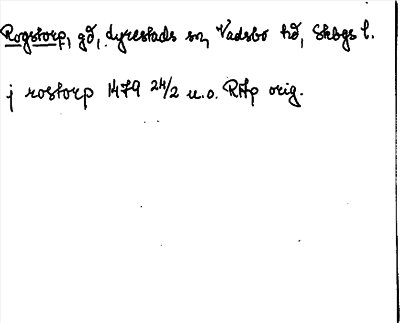 Rogstorp, gd, Lyrestads sn, Vadsbo hd, Skbgs l.
j rostorp 1479 24/2 u.o. RAp orig.